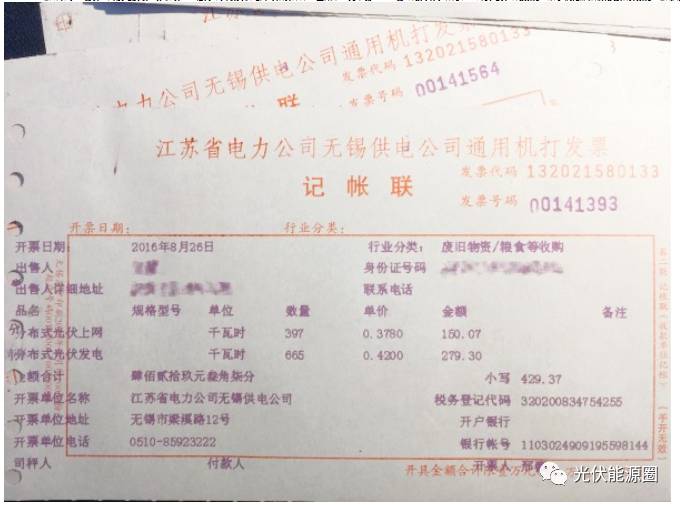 江苏省电力公司无锡供电公司通用机打发票
发票代码 132021580133
记 帐 联
发票号码 00141564
江苏省电力公司无锡供电公司通用机打发票
发票代码 132021580133
记 帐 联
发票号码 00141393
开票日期: 行业分类:
开票日期: 2016年8月26日 行业分类: 废旧物资/粮食等收购
出售人 身份证号码
出售人详细地址 联系电话
品名 规格型号 单位 数量 单价 金额 备注
分布式光伏上网 千瓦时 397 0.3780 150.07
分布式光伏发电 千瓦时 665 0.4200 279.30
金额合计 肆佰贰拾玖元叁角柒分 小写 429.37
开票单位名称 江苏省电力公司无锡供电公司 税务登记代码 320200834754255
开票单位地址 无锡市梁溪路12号 开户银行
开票单位电话 0510-85923222 银行帐号 1103024909195598144
司秤人 付款人 开票人
开具金额合计限壹万元
第二联 记帐联(收款单位记帐)
(手开无效)
光伏能源圈